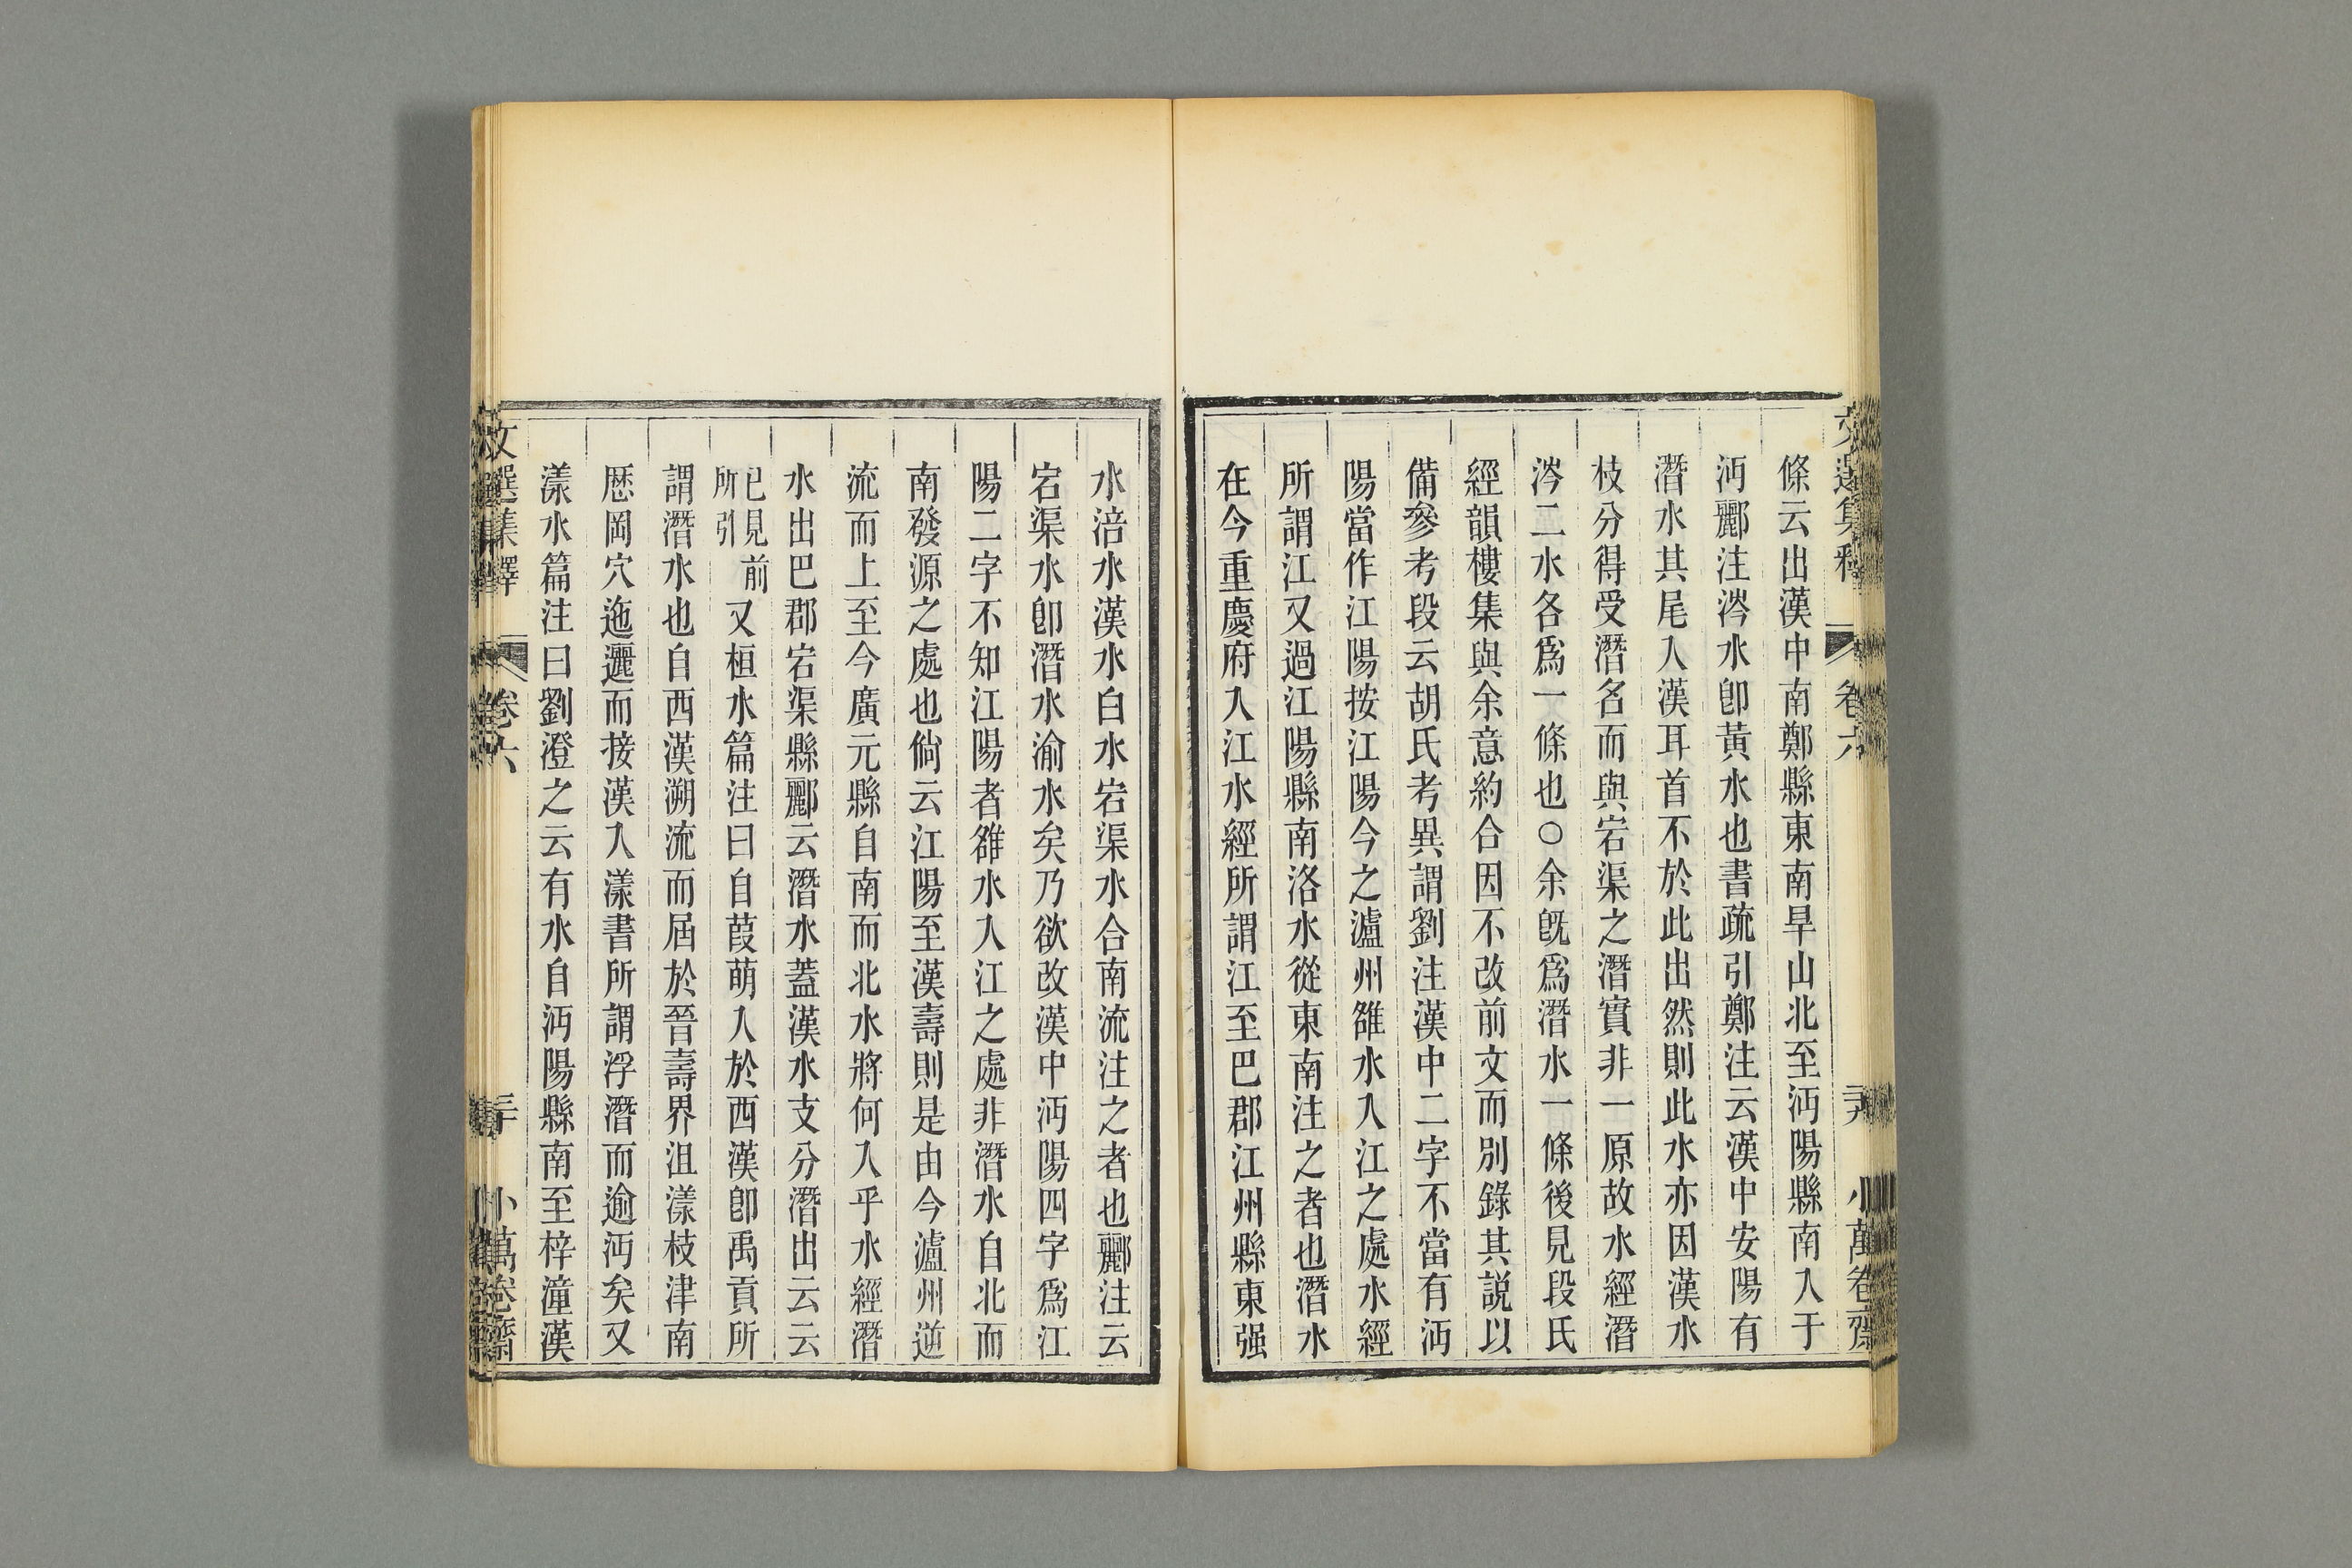 條云出漢中南鄭縣東南旱山北至沔陽縣南入于
沔酈注涔水卽黃水也書疏引鄭注云漢中安陽有
潛水其尾入漢耳首不於此出然則此水亦因漢水
枝分得受潛名而與宕渠之潛實非一原故水經潛
涔二水各爲一條也○余旣爲潛水一條後見段氏
經韻樓集與余意約合因不改前文而別錄其説以
備參考段云胡氏考異謂劉注漢中二字不當有沔
陽當作江陽按江陽今之瀘州雒水入江之處水經
所謂江又過江陽縣南洛水從東南注之者也潛水
在今重慶府入江水經所謂江至巴郡江州縣東强
水涪水漢水白水宕渠水合南流注之者也酈注云
宕渠水卽潛水渝水矣乃欲改漢中沔陽四字爲江
陽二字不知江陽者雒水入江之處非潛水自北而
南發源之處也倘云江陽至漢壽則是由今瀘州逆
流而上至今廣元縣自南而北水將何入乎水經潛
水出巴郡宕渠縣酈云潛水蓋漢水支分潛出云云
已見前所引又桓水篇注曰自葭萌入於西漢卽禹貢所
謂潛水也自西漢溯流而屆於晉壽界沮漾枝津南
歷岡穴迤邐而接漢入漾書所謂浮潛而逾沔矣又
漾水篇注曰劉澄之云有水自沔陽縣南至梓潼漢
文選集釋
卷六
小萬卷齋